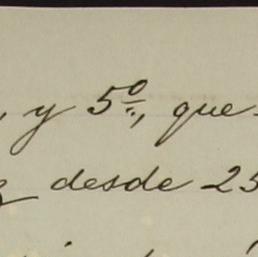 , y 5º, que
desde 25